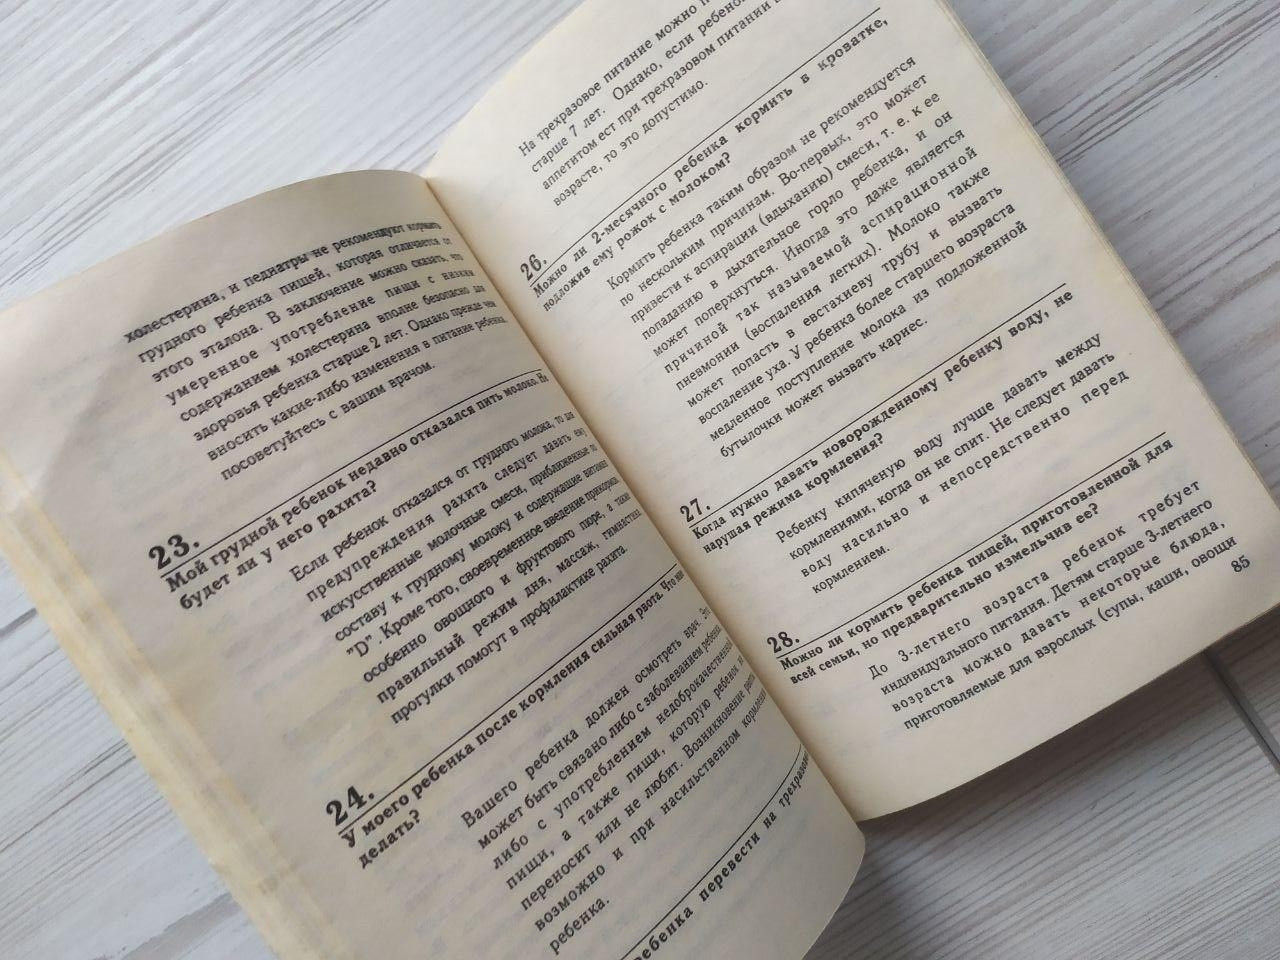 холестерина, и педиатры не рекомендуют кормить
грудного ребенка пищей, которая отличается от
этого эталона. В заключение можно сказать, что
умеренное употребление пищи с низким
содержанием холестерина вполне безопасно для
здоровья ребенка старше 2 лет. Однако прежде чем
вносить какие-либо изменения в питание ребенка,
посоветуйтесь с вашим врачом.
23.
Мой грудной ребенок недавно отказался пить молоко. Не
будет ли у него рахита?
Если ребенок отказался от грудного молока, то для
предупреждения рахита следует давать ему
искусственные молочные смеси, приближенные по
составу к грудному молоку и содержащие витамин
"D". Кроме того, своевременное введение прикорма,
особенно овощного и фруктового пюре, а также
правильный режим дня, массаж, гимнастика,
прогулки помогут в профилактике рахита.
24.
У моего ребенка после кормления сильная рвота. Что мне
делать?
Вашего ребенка должен осмотреть врач. Это
может быть связано либо с заболеванием ребенка,
либо с употреблением недоброкачественной
пищи, а также пищи, которую ребенок не
переносит или не любит. Возникновение рвоты
возможно и при насильственном кормлении
ребенка.
ребенка перевести на трехразовое
На трехразовое питание можно
старше 7 лет. Однако, если ребенок
аппетитом ест при трехразовом питании в
возрасте, то это допустимо.
26.
Можно ли 2-месячного ребенка кормить в кроватке,
подложив ему рожок с молоком?
Кормить ребенка таким образом не рекомендуется
по нескольким причинам. Во-первых, это может
привести к аспирации (вдыханию) смеси, т. е. к ее
попаданию в дыхательное горло ребенка, и он
может поперхнуться. Иногда это даже является
причиной так называемой аспирационной
пневмонии (воспаления легких). Молоко также
может попасть в евстахиеву трубу и вызвать
воспаление уха. У ребенка более старшего возраста
медленное поступление молока из подложенной
бутылочки может вызвать кариес.
27.
Когда нужно давать новорожденному ребенку воду, не
нарушая режима кормления?
Ребенку кипяченую воду лучше давать между
кормлениями, когда он не спит. Не следует давать
воду насильно и непосредственно перед
кормлением.
28.
Можно ли кормить ребенка пищей, приготовленной для
всей семьи, но предварительно измельчив ее?
До 3-летнего возраста ребенок требует
индивидуального питания. Детям старше 3-летнего
возраста можно давать некоторые блюда,
приготовляемые для взрослых (супы, каши, овощи
85